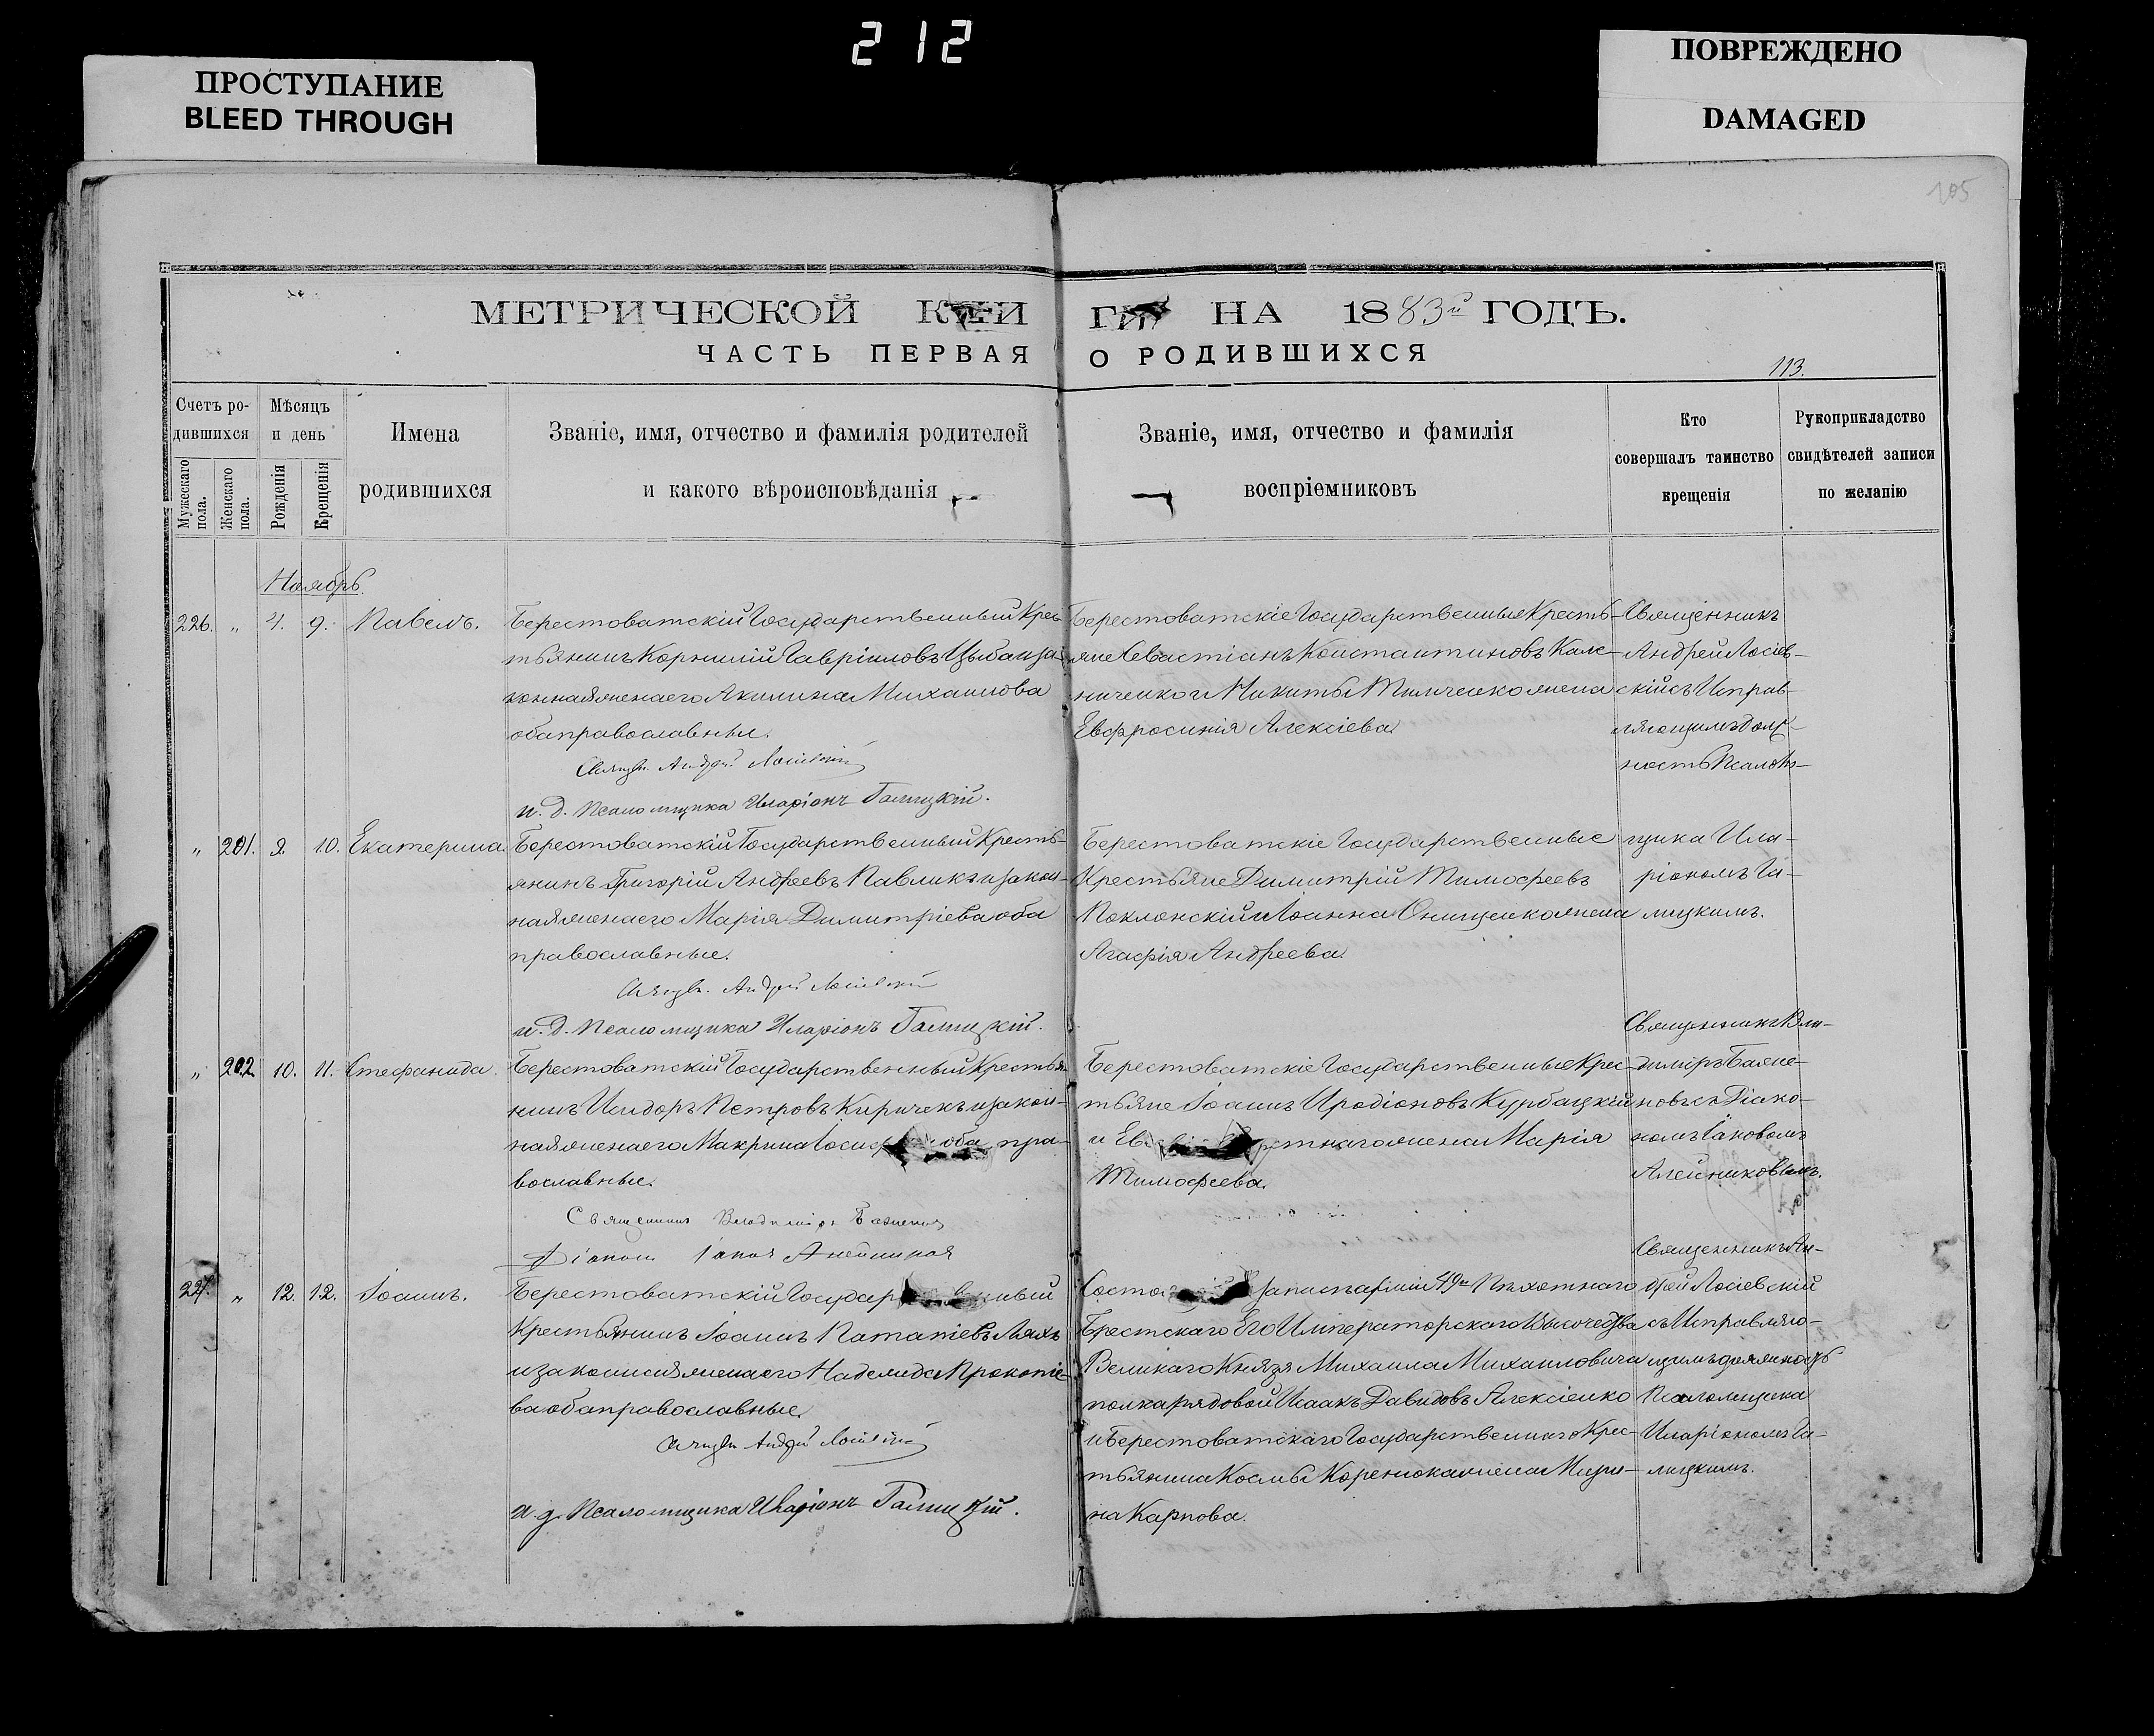 212
ПРОСТУПАНИЕ
BLEED THROUGH
ПОВРЕЖДЕНО
DAMAGED
105
МЕТРИЧЕСКОЙ КНИ ГИ НА 1883й ГОДЪ.
ЧАСТЬ ПЕРВАЯ О РОДИВШИХСЯ
113.
Счетъ ро-
дившихся
Мужескаго пола.
Женскаго пола.
Мѣсяцъ
и день
Рожденія
Крещенія
Имена
родившихся
Званіе, имя, отчество и фамилія родителей
и какого вѣроисповѣданія
Званіе, имя, отчество и фамилія
воспріемниковъ
Кто
совершалъ таинство
крещенія
Рукоприкладство
свидѣтелей записи
по желанію
Ноябрь.
226. „ 4. 9. Павелъ.
Берестоватскій Государственный Крес-
тьянинъ Корнилій Гавріиловъ Цыбань и за-
конная жена его Акилина Михаилова
оба православные.
Священ. Андрей Лосіевскій
и. д. Псаломщика Иларіонъ Галицкій.
Берестоватскіе Государственные Кресть-
яне Севастіанъ Константиновъ Кале-
ниченко и Никиты Тимченко жена
Евфросинія Алексіева.
Священникъ
Андрей Лосіев-
скій съ Исправ-
ляющимъ долж-
ность Псалом-
щика Ила-
ріономъ Га-
лицкимъ.
„ 201. 9. 10. Екатерина.
Берестоватскій Государственный Кресть-
янинъ Григорій Андреевъ Павликъ и закон-
ная жена его Марія Димитріева оба
православные.
Священ. Андрей Лосіевскій
и. Д. Псаломщика Иларіонъ Галицкій.
Берестоватскіе Государственные
Крестьяне Димитрій Тимофеевъ
Поклонскій и Іоанна Онищенко жена
Агафія Андреева.
„ 202. 10. 11. Стефанида.
Берестоватскій Государственный Крестья-
нинъ Исидоръ Петровъ Киричекъ и закон-
ная жена его Макрина Іосиф оба пра-
вославные.
Священникъ Владиміръ Баженовъ
Діаконъ Іаковъ Алейниковъ
Берестоватскіе Государственные Крес-
тьяне Іоаннъ Иродіоновъ Курбацкій
и Ев тнаго жена Марія
Тимофеева.
Священникъ Вла-
диміръ Баже-
новъ съ Діако-
номъ Іаковомъ
Алейниковымъ.
227. „ 12. 12. Іоаннъ.
Берестоватскій Государ нный
Крестьянинъ Іоаннъ Потапіевъ Ляхъ
и законная жена его Надежда Прокопіе-
ва оба православные.
Священ Андрей Лосіевскій
и. д. Псаломщика Иларіонъ Галицкій.
Состо запасн арміи 49го Пѣхотнаго
Брестскаго Его Императорскаго Высочества
Великаго Князя Михаила Михаиловича
полка рядовой Исаакъ Давидовъ Алексіенко
и Берестоватскаго Государственнаго Крес-
тьянина Космы Коренюка жена Мари-
на Карпова.
Священникъ Ан-
дрей Лосіевскій
съ Исправляю-
щимъ должность
Псаломщика
Иларіономъ Га-
лицкимъ.